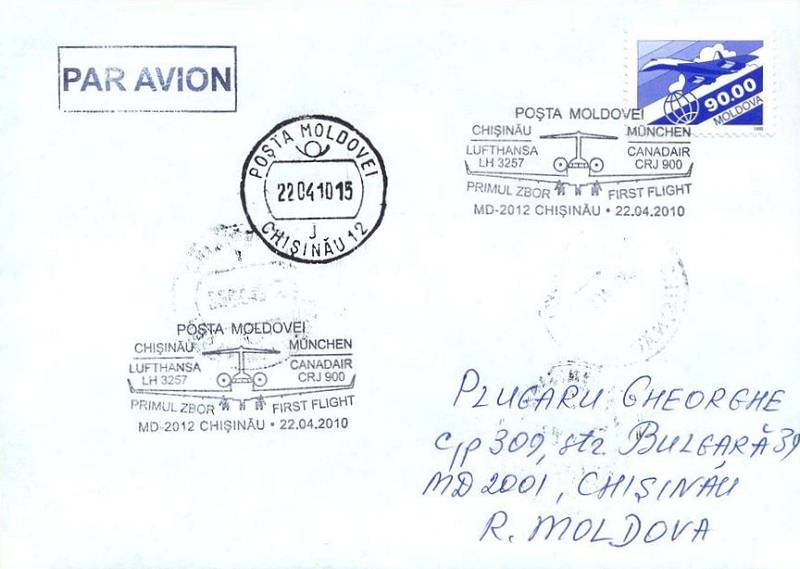 PAR AVION
90.00
MOLDOVA
POȘTA MOLDOVEI
CHIȘINĂU MÜNCHEN
LUFTHANSA CANADAIR
LH 3257 CRJ 900
PRIMUL ZBOR FIRST FLIGHT
MD-2012 CHIȘINĂU • 22.04.2010
POȘTA MOLDOVEI
22 04 10 15
J
CHIȘINĂU 12
POȘTA MOLDOVEI
CHIȘINĂU MÜNCHEN
LUFTHANSA CANADAIR
LH 3257 CRJ 900
PRIMUL ZBOR FIRST FLIGHT
MD-2012 CHIȘINĂU • 22.04.2010
PLUGARU GHEORGHE
c/p 309, str. BULGARĂ 39
MD 2001, CHIȘINĂU
R. MOLDOVA